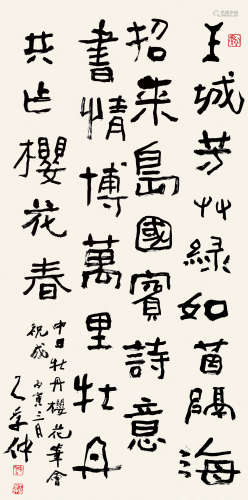 王城芳艸綠如茵隔海
招来島國賓詩意
書情博萬里牡丹
共乍櫻花春
中日牡丹櫻花筆會
祝成 丙寅三月
學仲